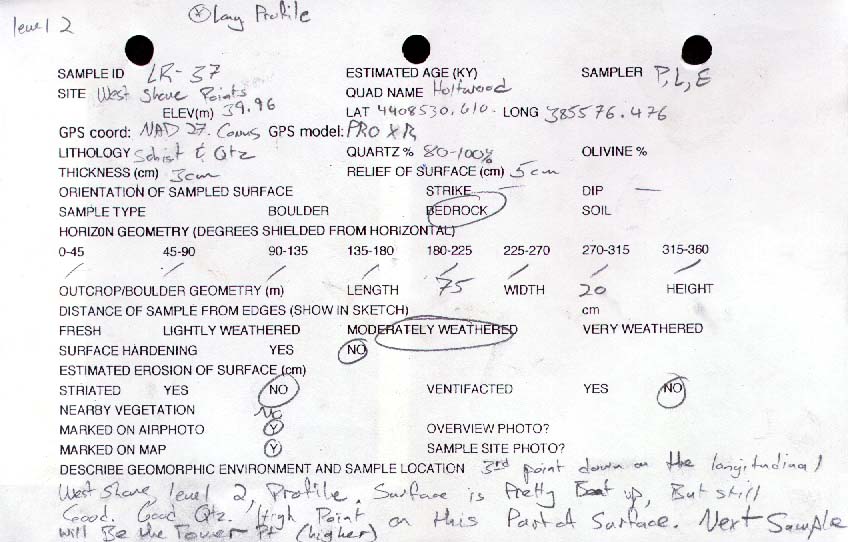 level 2 ⊛ Long Profile
SAMPLE ID LR-37 ESTIMATED AGE (KY) SAMPLER P, L, E
SITE West Shore Points QUAD NAME Holtwood
ELEV(m) 39.96 LAT 4408530.610 LONG 385576.476
GPS coord: NAD 27. Conus GPS model: PRO XR
LITHOLOGY Schist & Qtz QUARTZ % 80-100% OLIVINE %
THICKNESS (cm) 3cm RELIEF OF SURFACE (cm) 5cm
ORIENTATION OF SAMPLED SURFACE STRIKE — DIP —
SAMPLE TYPE BOULDER BEDROCK SOIL
HORIZON GEOMETRY (DEGREES SHIELDED FROM HORIZONTAL)
0-45 45-90 90-135 135-180 180-225 225-270 270-315 315-360
/ / / / / / / /
OUTCROP/BOULDER GEOMETRY (m) LENGTH 75 WIDTH 20 HEIGHT
DISTANCE OF SAMPLE FROM EDGES (SHOW IN SKETCH) cm
FRESH LIGHTLY WEATHERED MODERATELY WEATHERED VERY WEATHERED
SURFACE HARDENING YES NO
ESTIMATED EROSION OF SURFACE (cm)
STRIATED YES NO VENTIFACTED YES NO
NEARBY VEGETATION No
MARKED ON AIRPHOTO Y OVERVIEW PHOTO?
MARKED ON MAP Y SAMPLE SITE PHOTO?
DESCRIBE GEOMORPHIC ENVIRONMENT AND SAMPLE LOCATION 3rd point down on the longitudinal
West Shore, level 2, Profile. Surface is Pretty Beat up, But still
Good. Good Qtz. High Point on this Part of Surface. Next Sample
will Be the Tower Pt (higher)